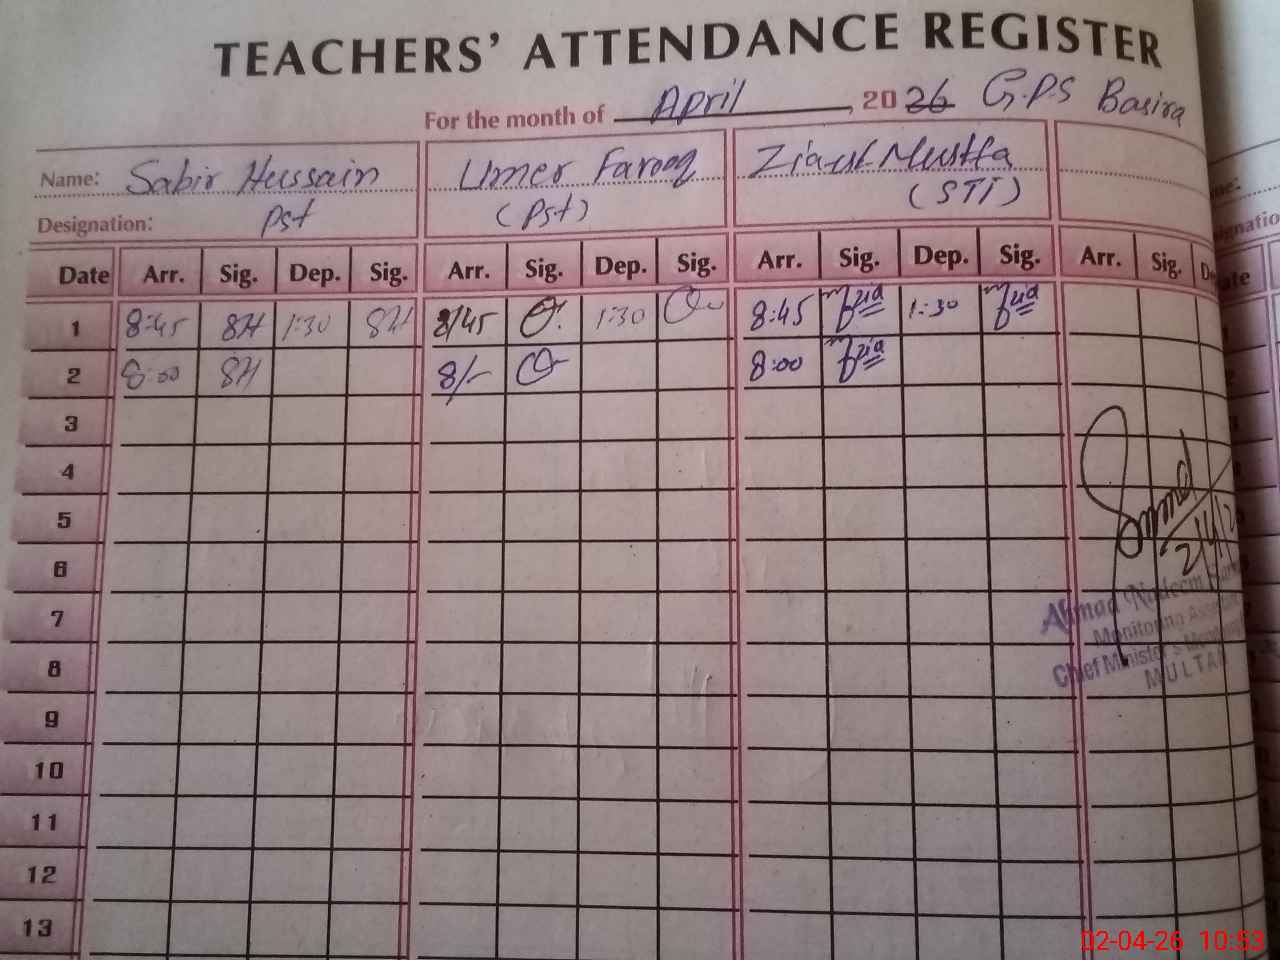 TEACHERS' ATTENDANCE REGISTER
For the month of April, 2026 G.P.S Basira
Name: Sabir Hussain Umer Farooq Zia-ul-Mustfa
Designation: Pst (Pst) (STI)
Date Arr. Sig. Dep. Sig. Arr. Sig. Dep. Sig. Arr. Sig. Dep. Sig. Arr. Sig.
1 8:45 SH 1:30 SH 8/45 1:30 8:45 zia 1:30 zia
2 8:00 SH 8/- 8:00 zia
3
4
5
6
7
8
9
10
11
12
13
2/4/2
Ahmad Nadeem
Monitoring
Chief Minister's
MULTAN
02-04-26 10:53